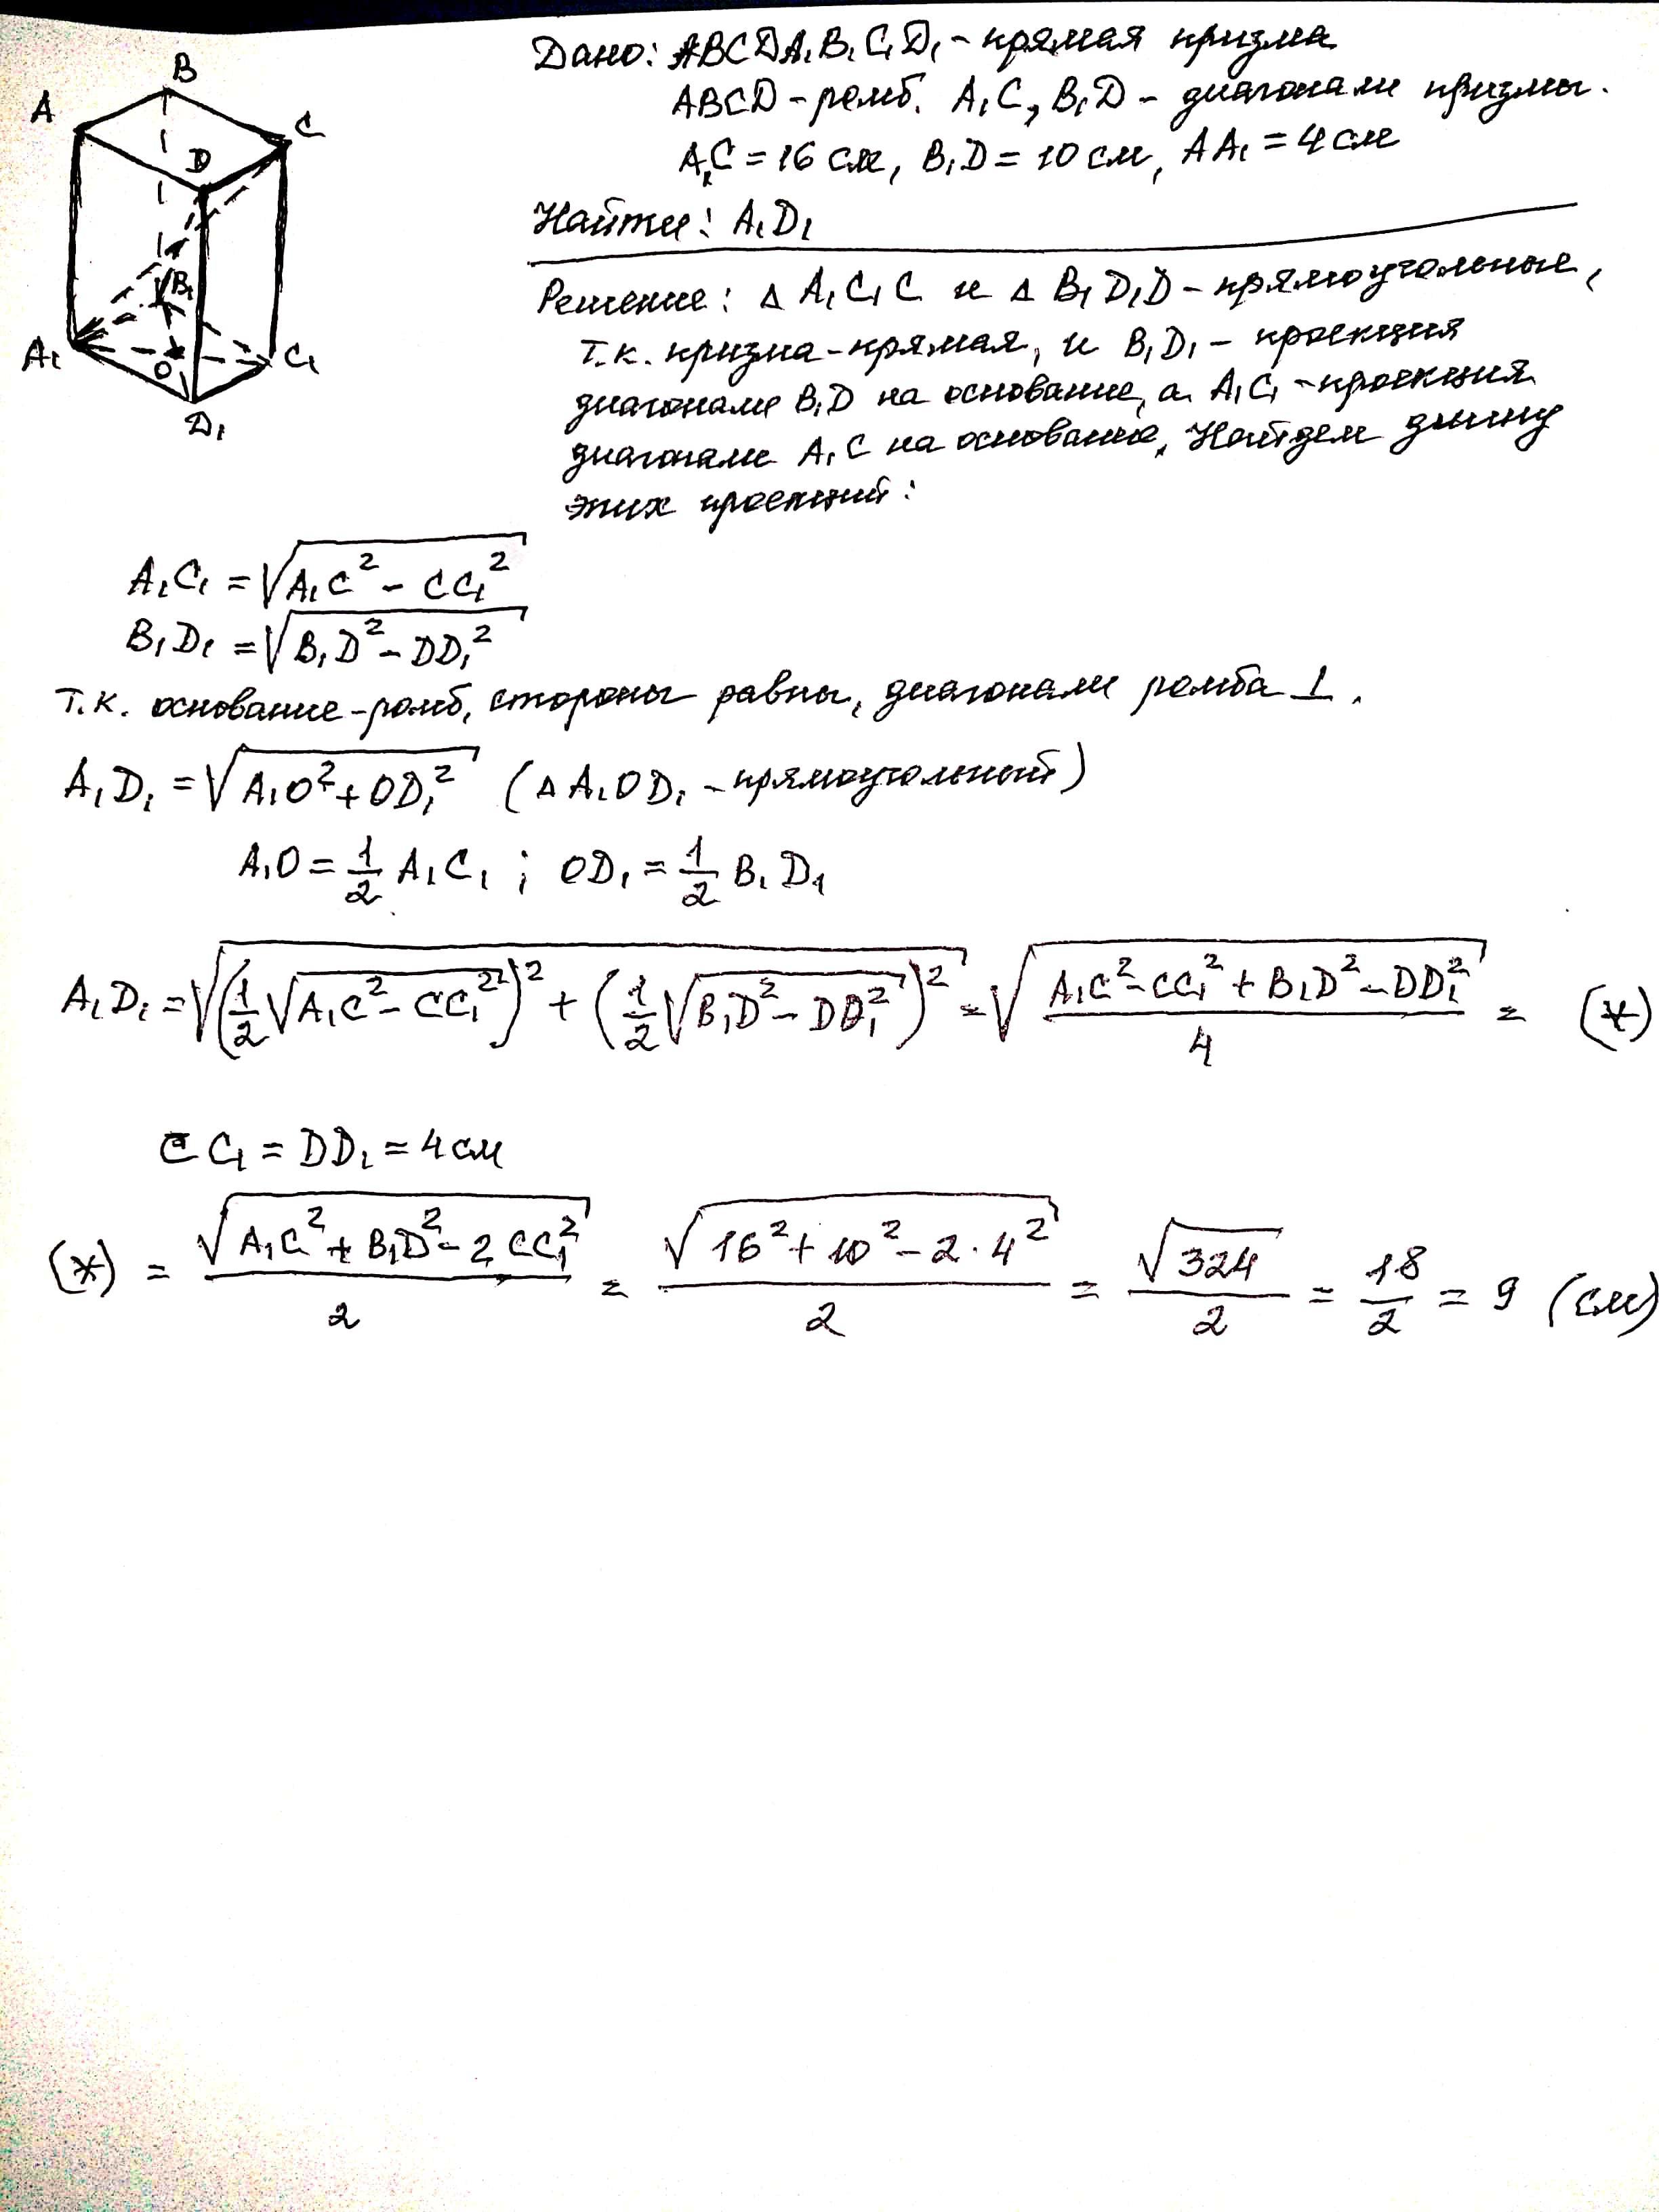 B
A
C
D
B₁
A₁
O
C₁
D₁
Дано: ABCDA₁B₁C₁D₁ - прямая призма
ABCD - ромб. A₁C, B₁D - диагонали призмы.
A₁C = 16 см, B₁D = 10 см, AA₁ = 4 см
Найти: A₁D₁
Решение: Δ A₁C₁C и Δ B₁D₁D - прямоугольные,
т.к. призма - прямая, и B₁D₁ - проекция
диагонали B₁D на основание, а A₁C₁ - проекция
диагонали A₁C на основание. Найдем длину
этих проекций:
A₁C₁ = √(A₁C² - CC₁²)
B₁D₁ = √(B₁D² - DD₁²)
Т.к. основание - ромб, стороны равны, диагонали ромба ⊥.
A₁D₁ = √(A₁O² + OD₁²) (Δ A₁OD₁ - прямоугольный)
A₁O = 1/2 A₁C₁ ; OD₁ = 1/2 B₁D₁
A₁D₁ = √((1/2 √(A₁C² - CC₁²))² + (1/2 √(B₁D² - DD₁²))²) = √((A₁C² - CC₁² + B₁D² - DD₁²)/4) = (*)
CC₁ = DD₁ = 4 см
(*) = √(A₁C² + B₁D² - 2CC₁²)/2 = √(16² + 10² - 2·4²)/2 = √324/2 = 18/2 = 9 (см)